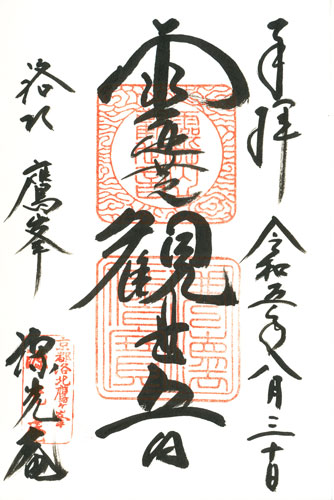 奉拝
令和五年八月三十日
霊芝観世音
洛北
鷹峯
源光庵
京都洛北鷹ヶ峯